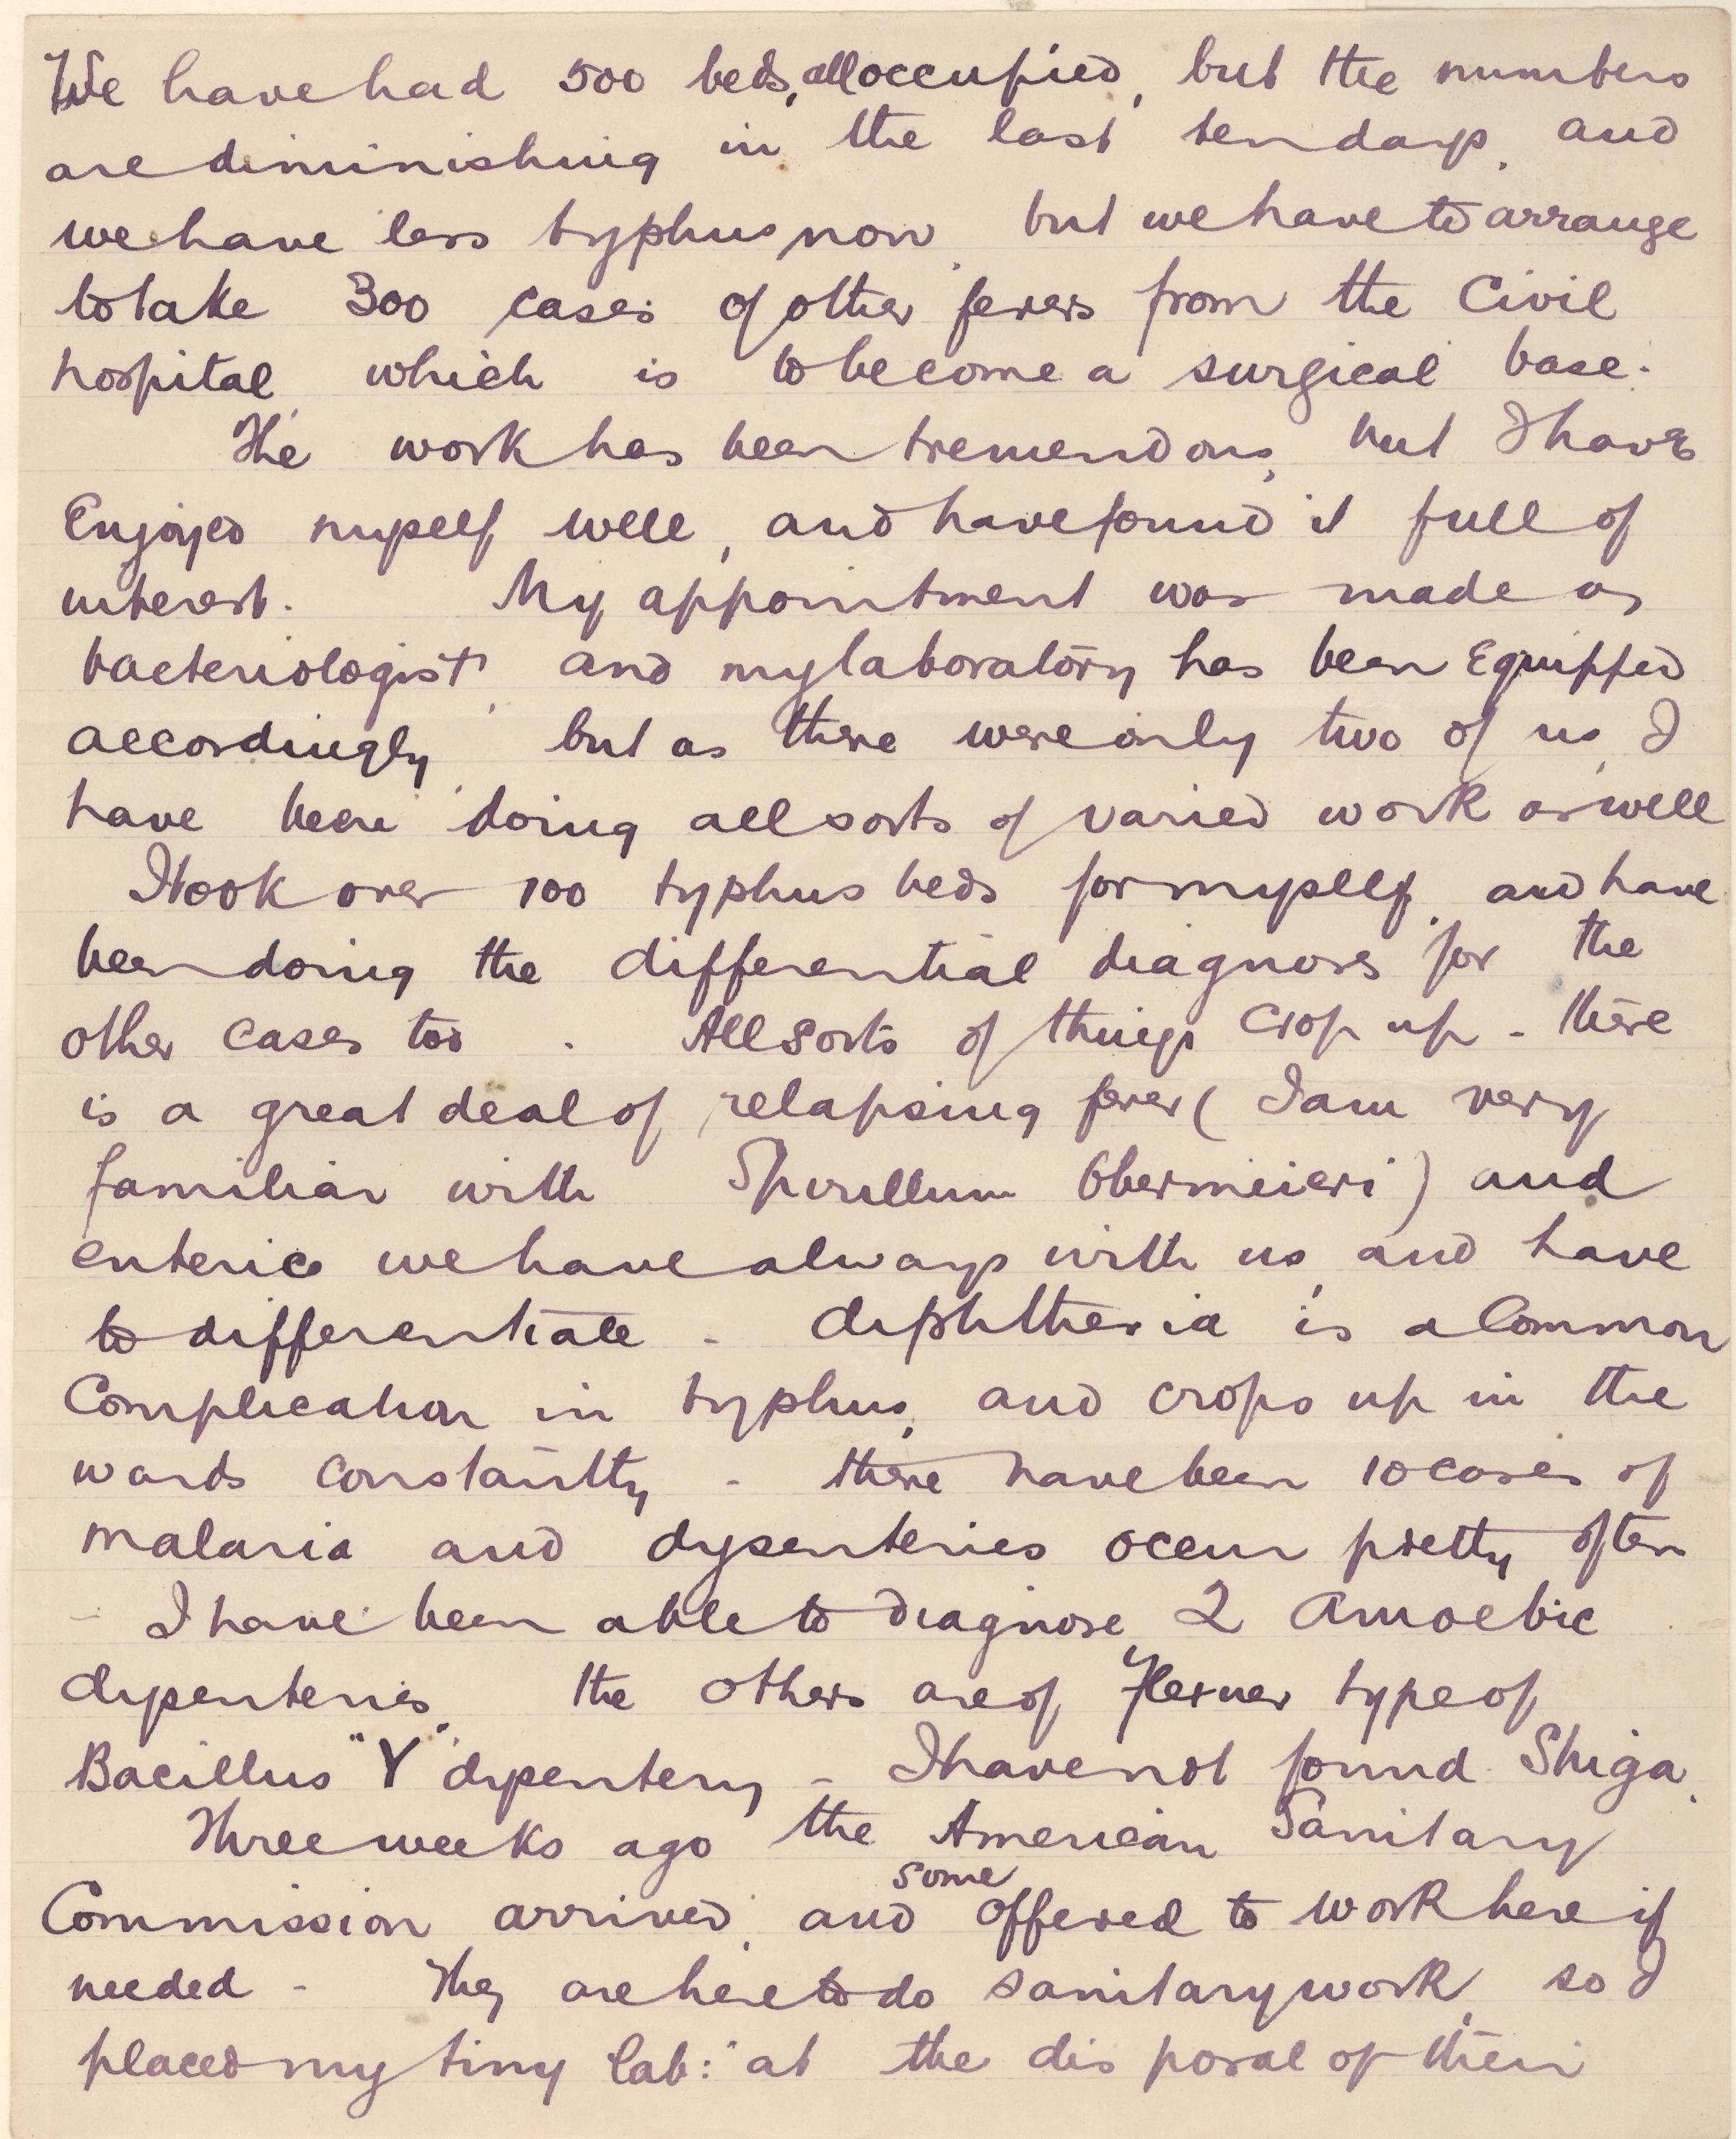 We have had 500 beds, all occupied, but the numbers
are diminishing in the last ten days, and
we have less typhus now, but we have to arrange
to take 300 cases of other fevers from the Civil
hospital, which is to become a surgical base.
The work has been tremendous, but I have
Enjoyed myself well, and have found it full of
interest. My appointment was made as
bacteriologist, and my laboratory has been Equipped
accordingly, but as there were only two of us, I
have been doing all sorts of varied work as well
I took over 100 typhus beds for myself, and have
been doing the differential diagnoses for the
other cases too. All sorts of things crop up - there
is a great deal of relapsing fever (I am very
familiar with Spirillum Obermeieri) and
enterics we have always with us, and have
to differentiate - diphtheria is a Common
Complication in typhus, and crops up in the
wards constantly - there have been 10 cases of
malaria and dysenteries occur pretty often
- I have been able to diagnose, 2 Amoebic
dysenteries, the others are of Flexner type of
Bacillus "Y" dysentery - I have not found Shiga.
Three weeks ago the American Sanitary
Commission arrived, and some offered to work here if
needed - They are here to do sanitary work, so I
placed my tiny lab: at the disposal of their